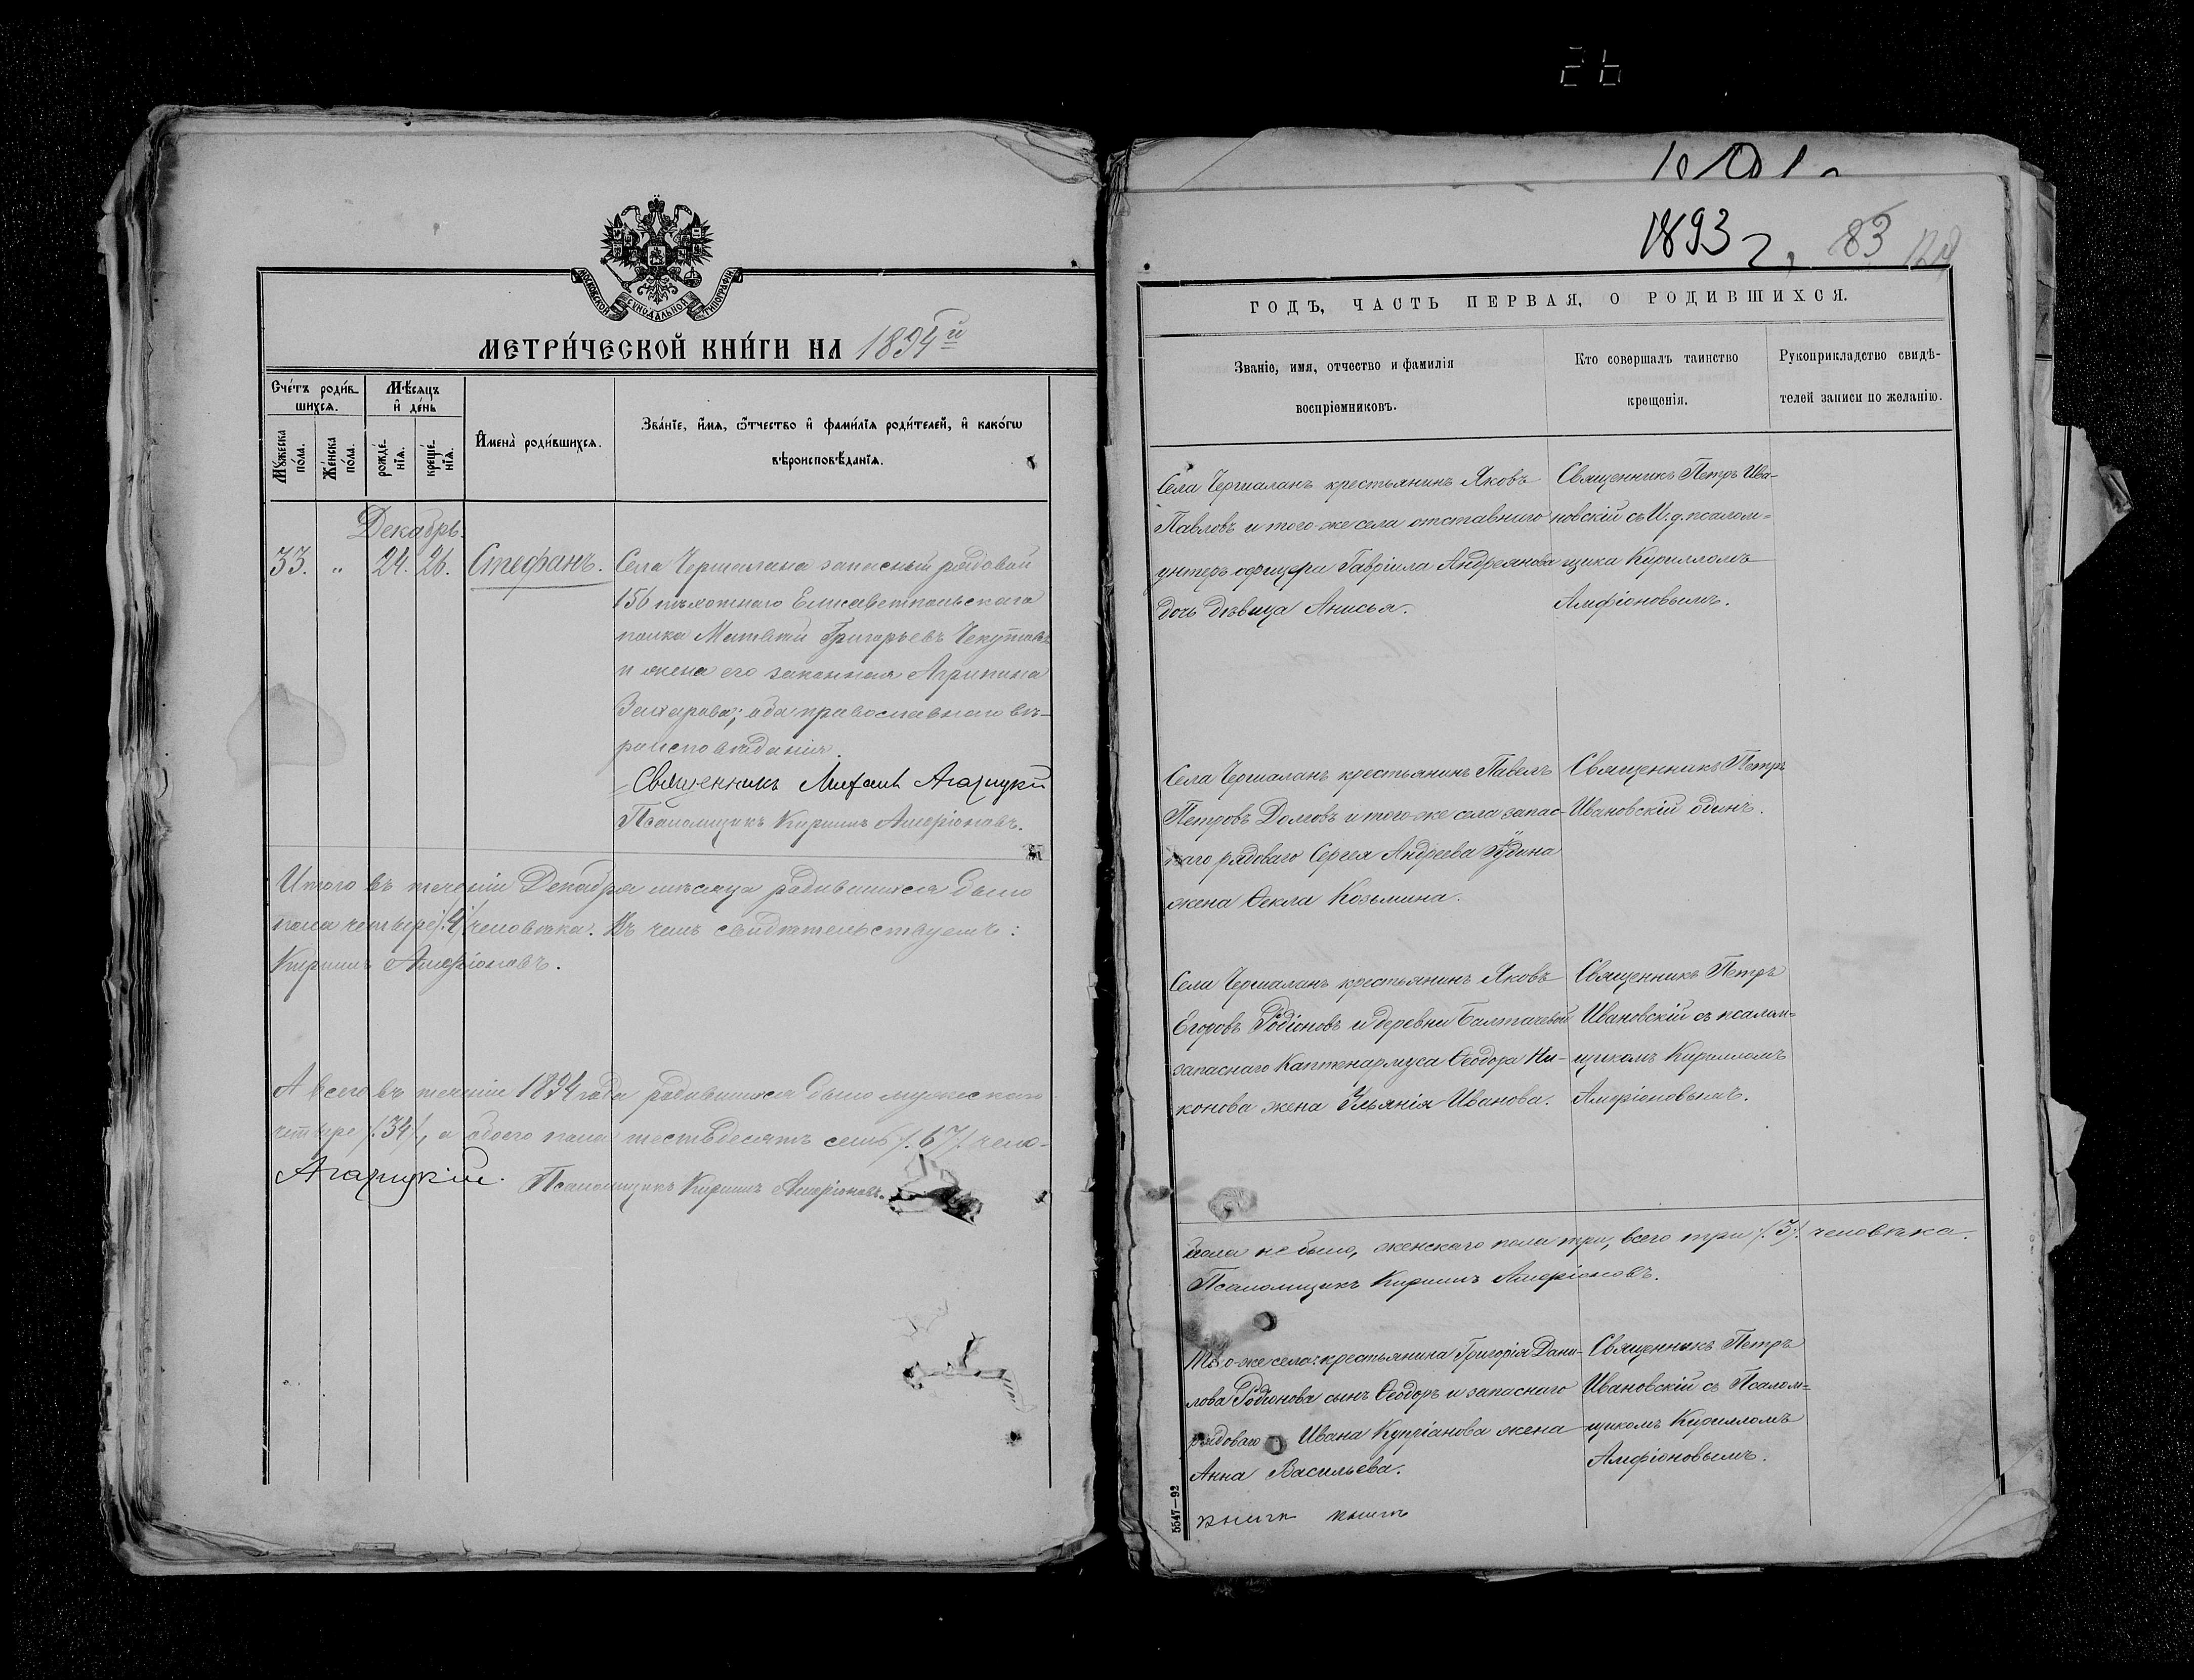 26
МОСКОВСКОЙ СИНОДАЛЬНОЙ ТИПОГРАФІИ
МЕТРИ́ЧЕСКОЙ КНИ́ГИ НА 1894й
Сче́тъ роди́вшихся.
Мѣ́сяцъ и҆ де́нь
Мꙋ́жеска по́ла.
Же́нска по́ла.
рожде́нїѧ.
креще́нїѧ.
И҆мена̀ роди́вшихсѧ.
Зва́нїе, и҆́мѧ, ѻ҆́тчество и҆ фами́лїѧ роди́телей, и҆ како́гѡ
вѣроисповѣ́данїѧ.
Декабрь.
33. „ 24. 26. Стефанъ.
Села Чершалана запасный рядовой
156 пѣхотнаго Елисаветпольскаго
полка Матвѣй Григорьевъ
и жена его законная Агрипина
Захарова; оба православнаго вѣ-
роисповѣданія.
Священникъ Михаилъ
Псаломщикъ Кириллъ Амфіоновъ.
Итого въ теченіи Декабря мѣсяца родившихся было
пола четыре /.4/. человѣка. Въ чемъ свидѣтельствуемъ:
Кириллъ Амфіоновъ.
А всего въ теченіи 1894 года родившихся было мужескаго
четыре /.34/., а обоего пола шестьдесятъ семь /.67/. чело-
Псаломщикъ Кириллъ Амфіоновъ.
1893 г. 83
ГОДЪ, ЧАСТЬ ПЕРВАЯ, О РОДИВШИХСЯ.
Званіе, имя, отчество и фамилія
воспріемниковъ.
Кто совершалъ таинство
крещенія.
Рукоприкладство свидѣ-
телей записи по желанію.
Села Чершаланъ крестьянинъ Яковъ
Павловъ и того-же села отставнаго
унтеръ офицера Гавріила Андреянова
дочь дѣвица Анисья.
Священникъ Петръ Ива-
новскій съ И. д. псалом=
щика Кирилломъ
Амфіоновымъ.
Села Чершаланъ крестьянинъ Павелъ
Петровъ Долговъ и того-же села запас-
наго рядоваго Сергея Андреева
жена Ѳекла Козьмина.
Священникъ Петръ
Ивановскій одинъ.
Села Чершаланъ крестьянинъ Яковъ
Егоровъ Родіоновъ и деревни Балтачевой
запаснаго Каптенармуса Ѳеодора Ни-
конова жена Ульянія Иванова.
Священникъ Петръ
Ивановскій съ псалом=
щикомъ Кирилломъ
Амфіоновымъ.
пола не было, женскаго пола три, всего три /.3/. человѣка.
Псаломщикъ Кириллъ Амфіоновъ.
Того-же села: крестьянина Григорія Дани-
лова Родіонова сынъ Ѳеодоръ и запаснаго
рядоваго Ивана Купріанова жена
Анна Васильева.
Священникъ Петръ
Ивановскій съ Псалом=
щикомъ Кирилломъ
Амфіоновымъ.
5547—92